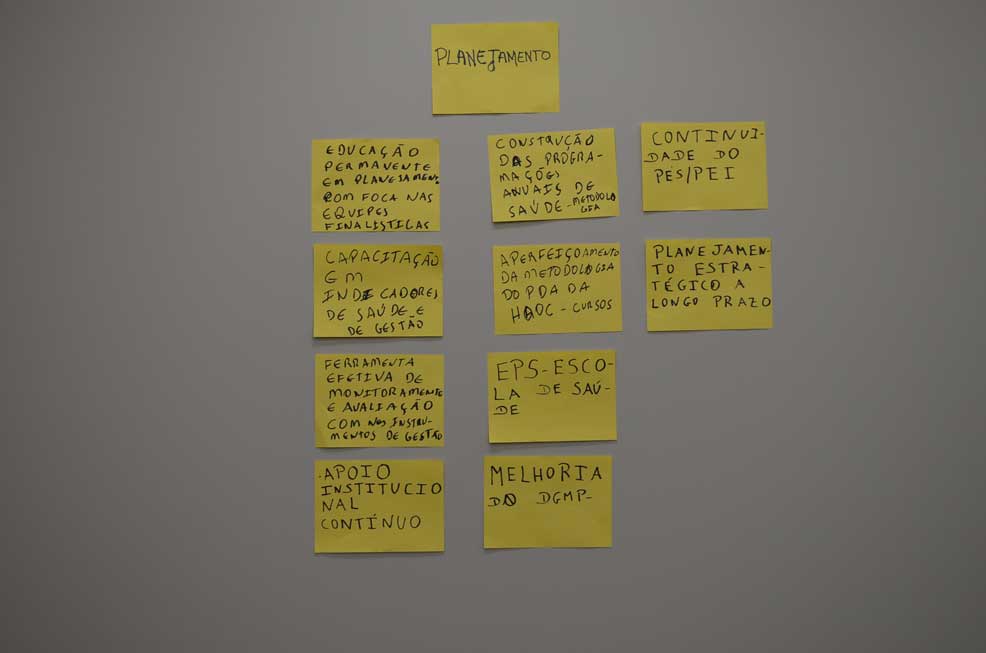 PLANEJAMENTO
EDUCAÇÃO
PERMANENTE
EM PLANEJAMENT
COM FOCA NAS
EQUIPES
FINALISTICAS
CAPACITAÇÃO
EM
INDICADORES
DE SAÚDE E
DE GESTÃO
FERRAMENTA
EFETIVA DE
MONITORAMENTE
E AVALIAÇÃO
COM NOS INSTRU-
MENTOS DE GESTÃO
.APOIO
INSTITUCIO
NAL
CONTÍNUO
CONSTRUÇÃO
DAS PROGRA-
MAÇÕES
ANUAIS DE
SAÚDE-METODOLO
GIA
APERFEIÇOAMENTO
DA METODOLOGIA
DO PDA DA
HAOC - CURSOS
EPS-ESCO-
LA DE SAÚ-
DE
MELHORIA
DO DGMP-
CONTINUI-
DADE DO
PES/PEI
PLANEJAMEN-
TO ESTRA-
TÉGICO A
LONGO PRAZO